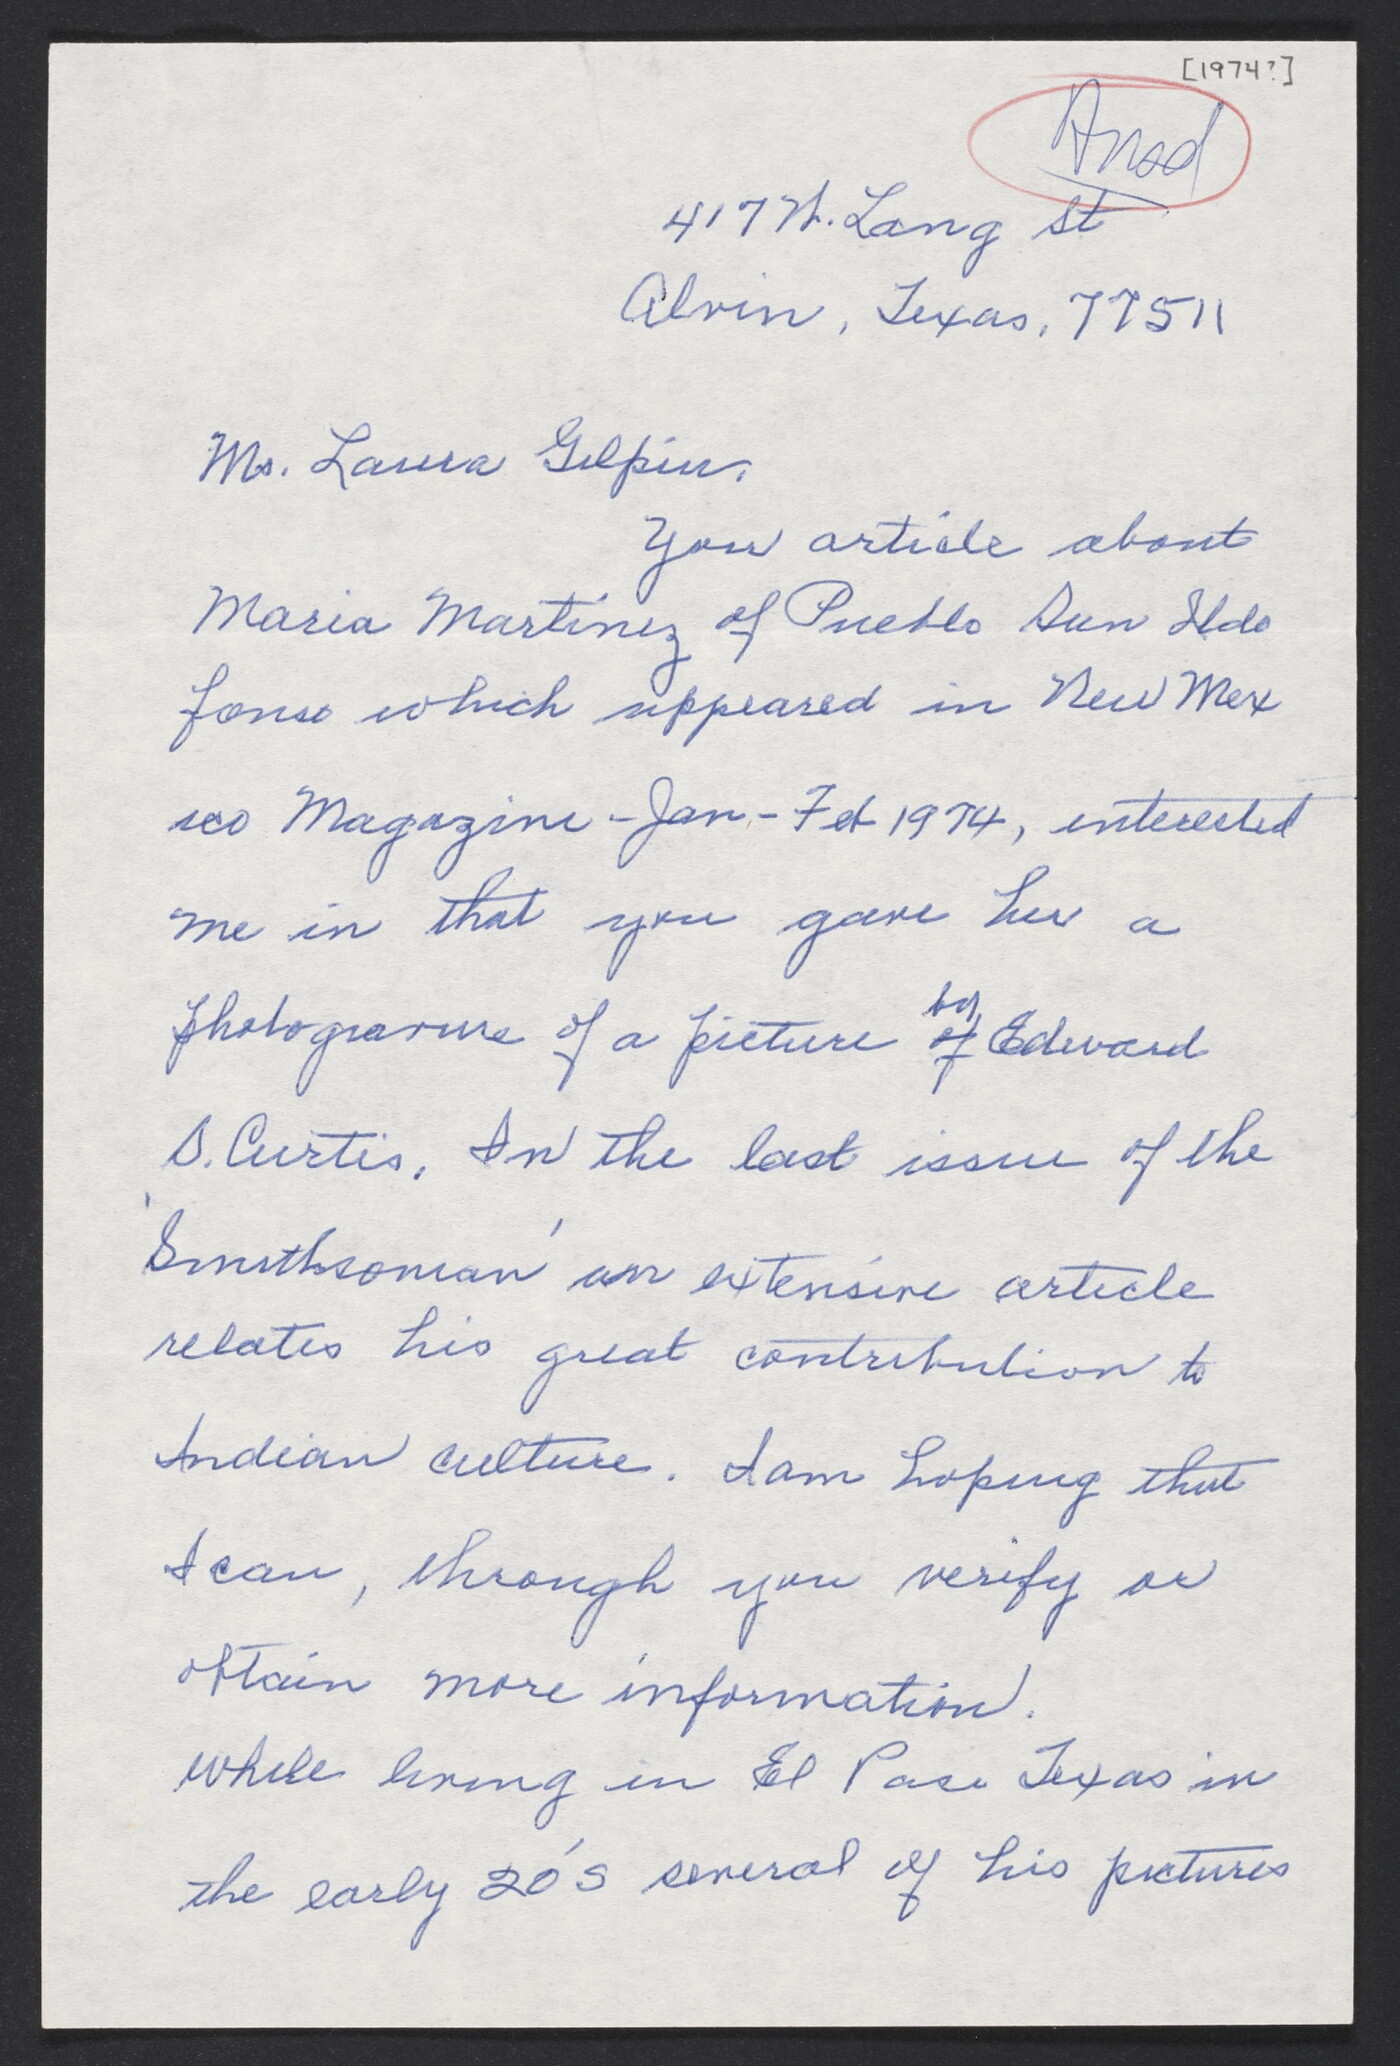 [1974?]
Ansd
417 W. Lang St
Alvin, Texas, 77511
Ms. Laura Gilpin,
Your article about
Maria Martinez of Pueblo San Ilde
fonso which appeared in New Mex
ico Magazine - Jan - Feb 1974, interested
me in that you gave her a
photogravure of a picture of by Edward
S. Curtis. In the last issue of the
'Smithsonian' an extensive article
relates his great contribution to
Indian culture. I am hoping that
I can, through you verify or
obtain more information.
While living in El Paso Texas in
the early 20's several of his pictures